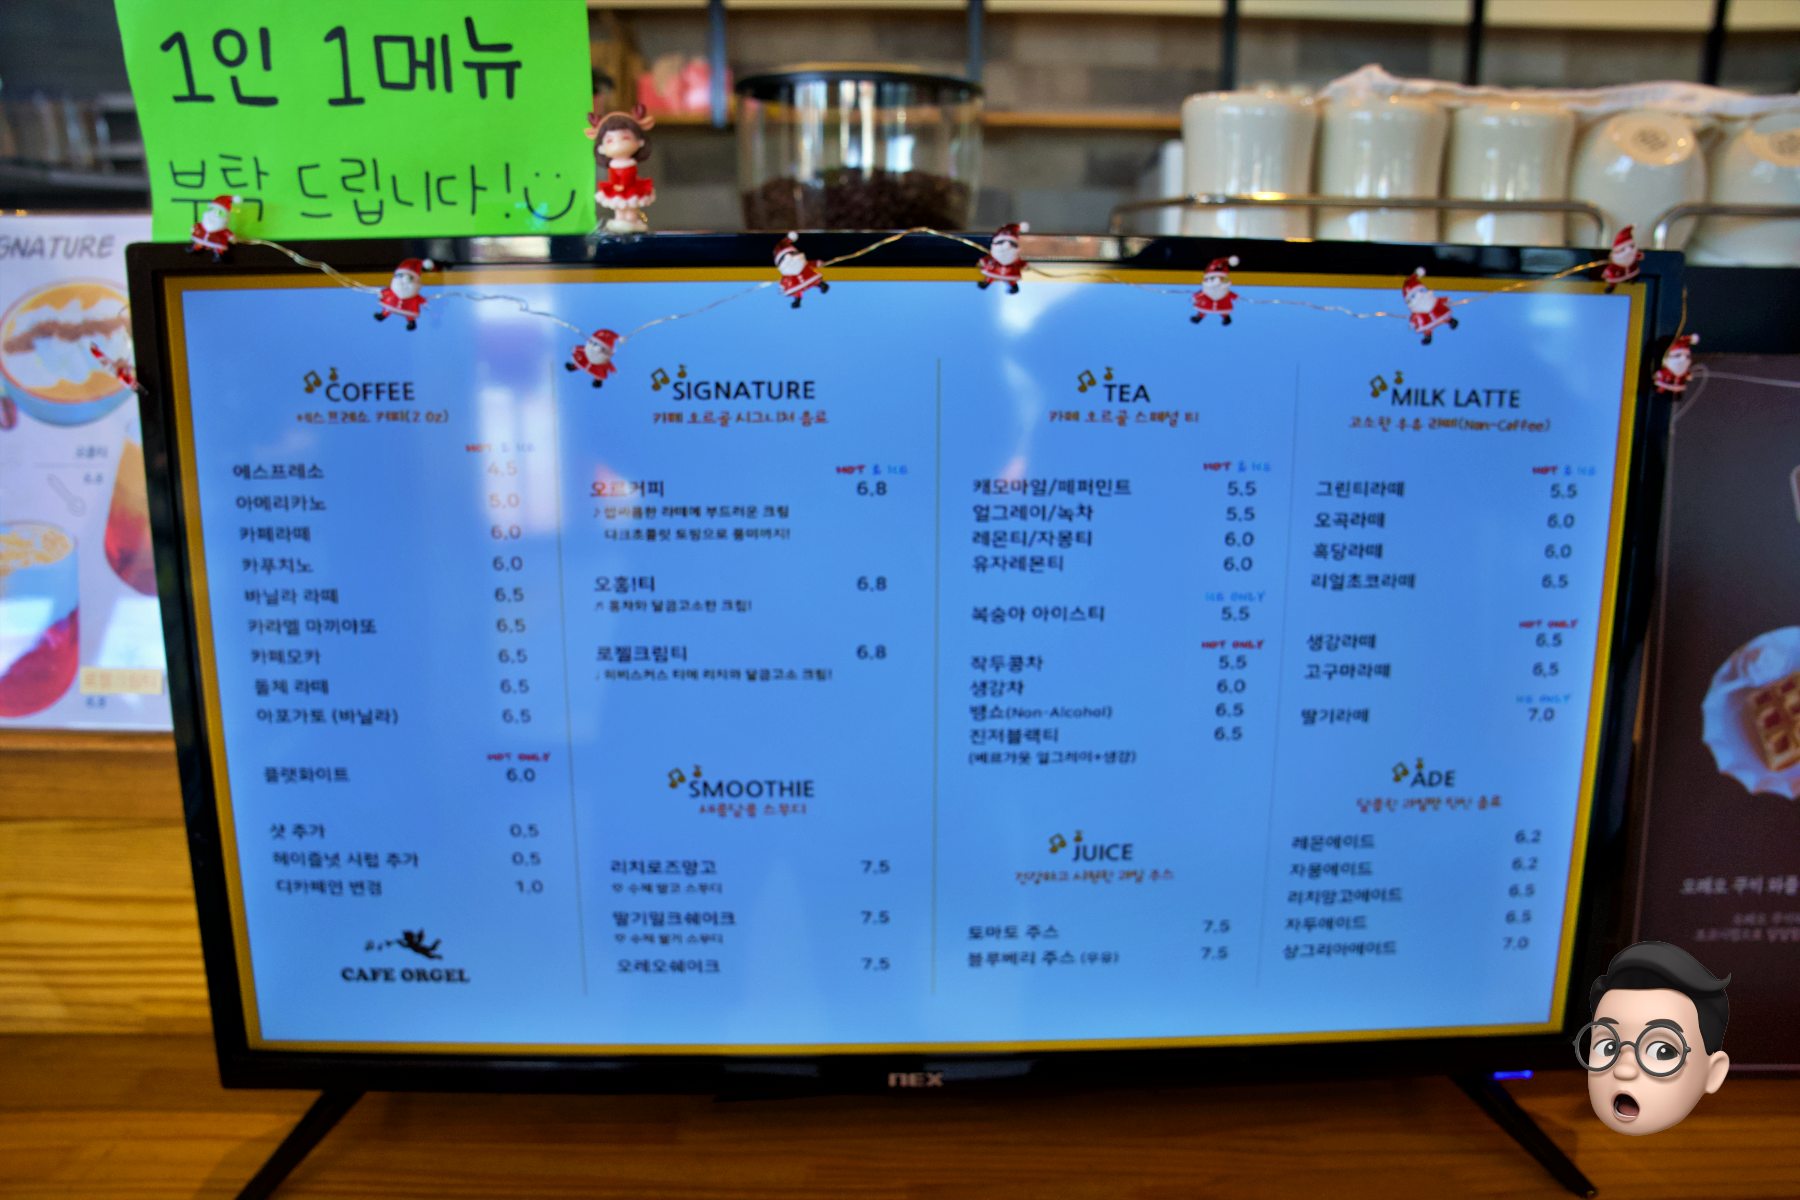 1인 1메뉴
부탁 드립니다!
GNATURE
COFFEE
에스프레소 커피(2 Oz)
HOT & ICE
에스프레소 4.5
아메리카노 5.0
카페라떼 6.0
카푸치노 6.0
바닐라 라떼 6.5
카라멜 마끼야또 6.5
카페모카 6.5
돌체 라떼 6.5
아포가토 (바닐라) 6.5
HOT ONLY
플랫화이트 6.0
샷 추가 0.5
헤이즐넛 시럽 추가 0.5
디카페인 변경 1.0
CAFE ORGEL
SIGNATURE
카페 오르골 시그니처 음료
HOT & ICE
오르커피 6.8
쌉싸름한 라떼에 부드러운 크림
다크초콜릿 토핑으로 풍미까지!
오홍!티 6.8
홍차와 달콤고소한 크림!
로젤크림티 6.8
히비스커스 티에 리치와 달콤고소 크림!
SMOOTHIE
새콤달콤 스무디
리치로즈망고 7.5
수제 망고 스무디
딸기밀크쉐이크 7.5
수제 딸기 스무디
오레오쉐이크 7.5
TEA
카페 오르골 스페셜 티
HOT & ICE
캐모마일/페퍼민트 5.5
얼그레이/녹차 5.5
레몬티/자몽티 6.0
유자레몬티 6.0
ICE ONLY
복숭아 아이스티 5.5
HOT ONLY
작두콩차 5.5
생강차 6.0
뱅쇼(Non-Alcohol) 6.5
진저블랙티 6.5
(베르가못 얼그레이+생강)
JUICE
건강하고 시원한 과일 주스
토마토 주스 7.5
블루베리 주스 (우유) 7.5
MILK LATTE
고소한 우유 라떼(Non-Coffee)
HOT & ICE
그린티라떼 5.5
오곡라떼 6.0
흑당라떼 6.0
리얼초코라떼 6.5
HOT ONLY
생강라떼 6.5
고구마라떼 6.5
ICE ONLY
딸기라떼 7.0
ADE
달콤한 과일향 탄산 음료
레몬에이드 6.2
자몽에이드 6.2
리치망고에이드 6.5
자두에이드 6.5
샹그리아에이드 7.0
오레오 쿠키 와플
nEX